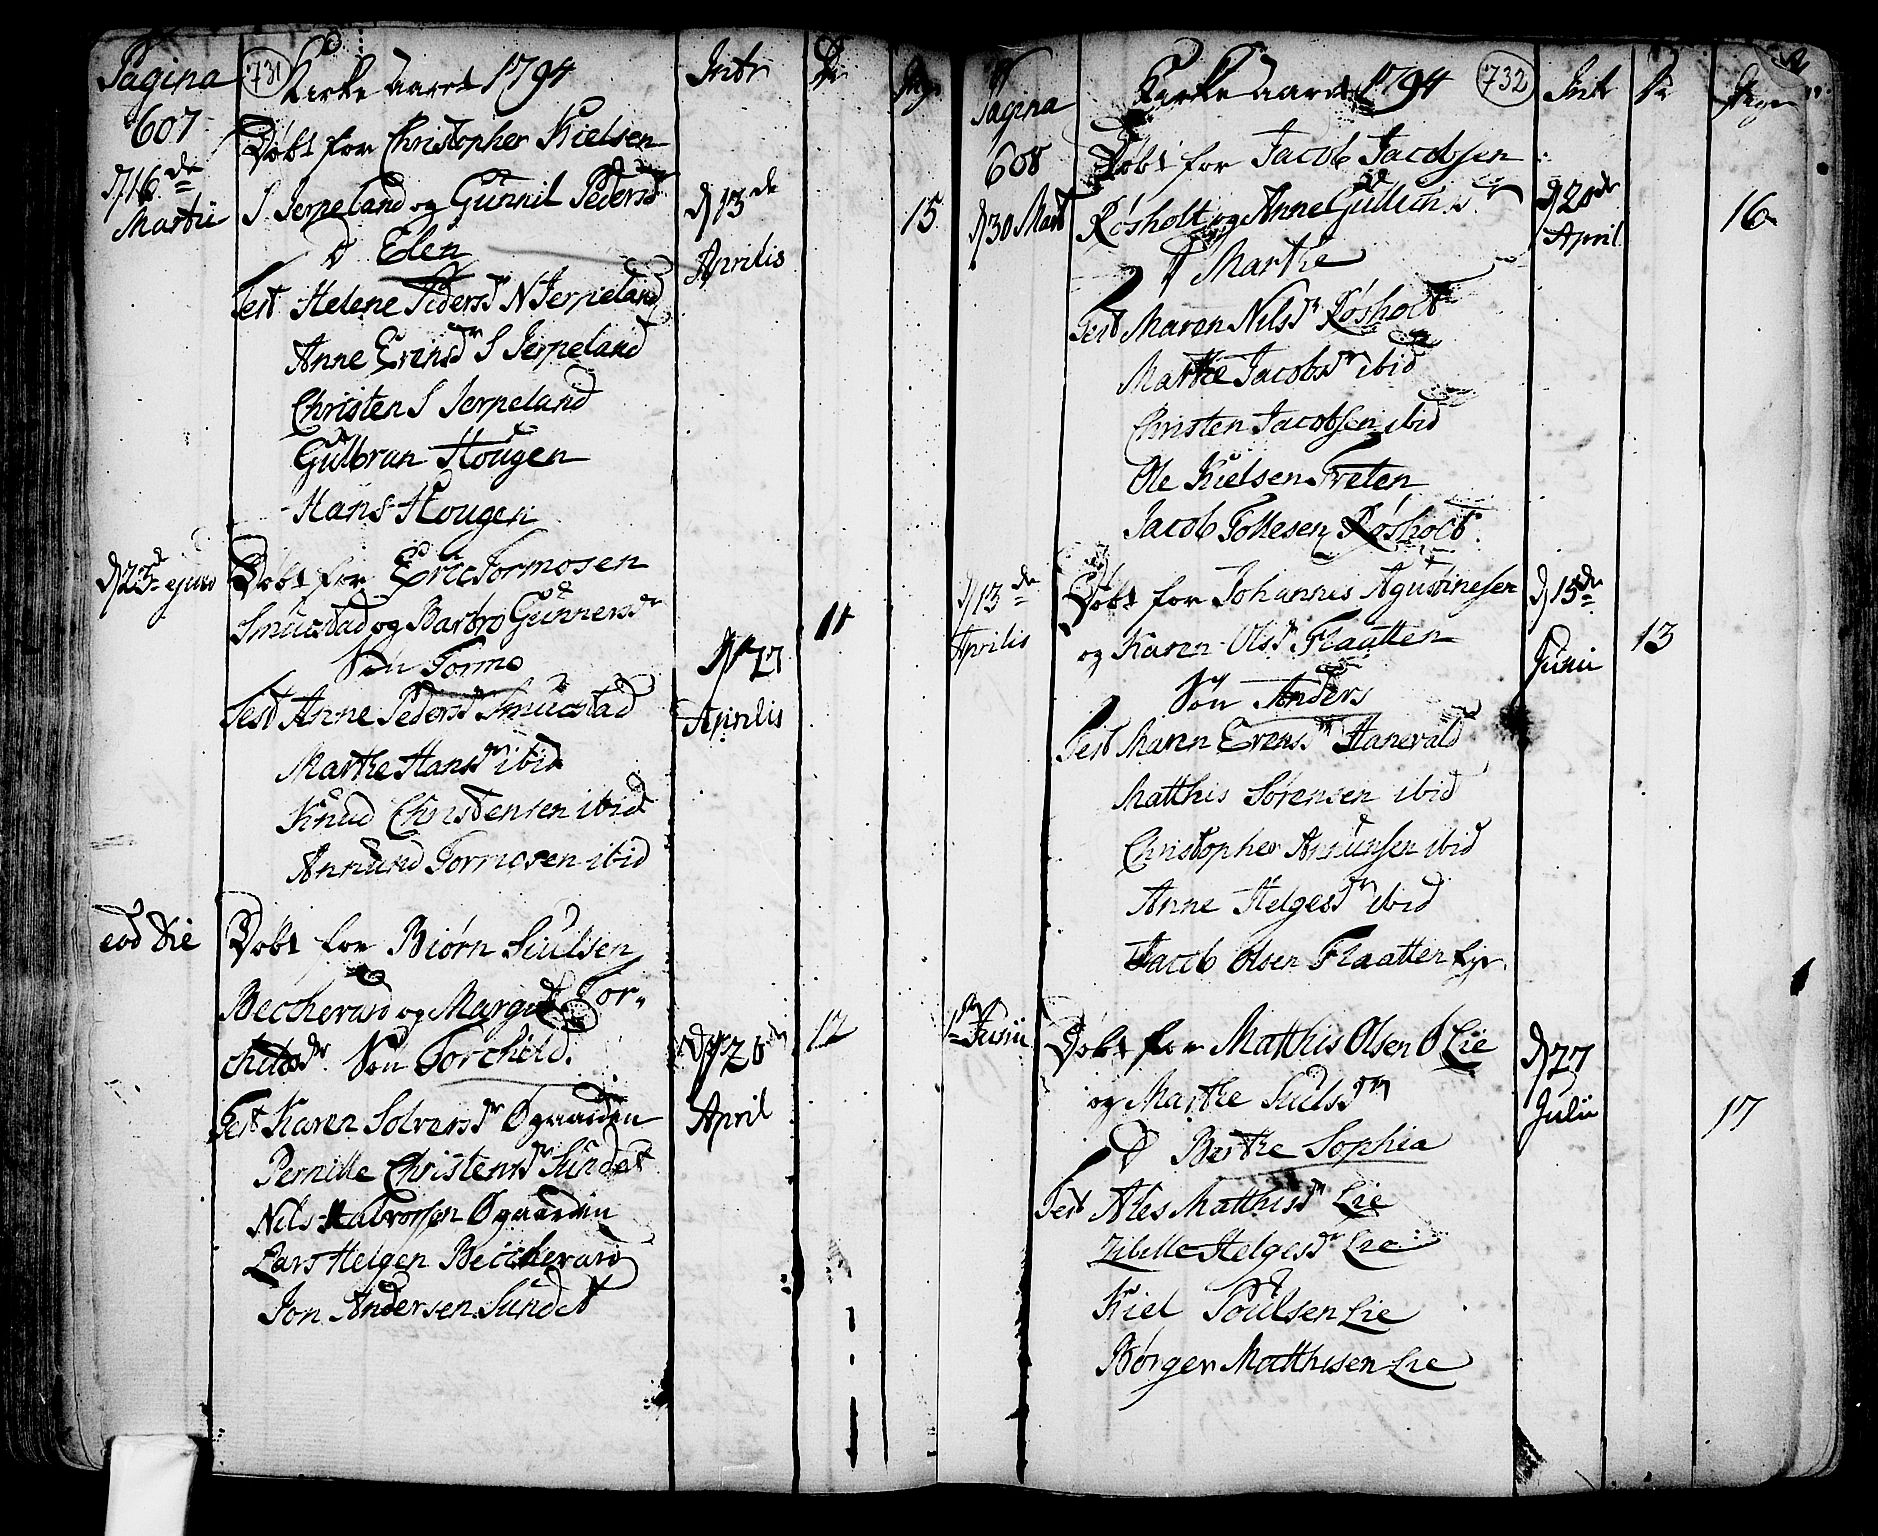 Pagina
607
731
Kirke Aaret 1794
Intr
Dr
Pig
d 16de
Martii
Døbt for Christopher Kielsen
S Jerpeland og Gunnil Pedersdr
D Elen
d 13de
Aprilis
15
Test Helene Pedersdr N Jerpeland
Anne Evensdr S Jerpeland
Christen S Jerpeland
Gulbran Hougen
Hans Hougen
d 23de ejusd
Døbt for Eric Tormosen
Smucstad og Barbro Gunnersdr
Søn Tormo
d 27
Aprilis
11
Test Anne Pedersdr Smucstad
Marthe Hansdr ibid
Knud Christensen ibid
Annund Tormosen ibid
eod die
Døbt for Biørn Siulsen
Becherasd og Margit Tor-
childsdr. Søn Torchild.
April
12
Test Karen Solversdr Øgaarden
Pernille Christensdr Sundet
Nils Halvorsen Øgaarden
Lars Helgen Beccherasd
Jon Andersen Sundet
Pagina
608
Kirke Aaret 1794
732
Intr
Dr
Piger
d 30 Mart
Døbt for Jacob Jacobsen
Røsholt og Anne
D Marthe
d 20de
April
16
Test Maren Nilsdr Røsholt
Marthe Jacobsdr ibid
Christen Jacobsen ibid
Ole Kielsen Træten
Jacob Tollesen Røsholt
d 13de
Aprilis
Døbt for Johannes Agustinesen
og Karen Olsdr Flaatten
Søn Anders
d 15de
Junii
13
Test Maren Evensdr Hanevald
Matthis Sørensen ibid
Christopher Annunsen ibid
Anne Helgesdr ibid
Jacob Olsen Flaatten Lyr.
1 Junii
Døbt for Matthis Olsen Ø Lie
og Marthe Siulsdr
D Berthe Sophia
d 27
Julii
17
Test Ales Matthisdr Lie
Zibille Helgesdr Lie
Kiel Poulsen Lie
Børger Matthisen Lie